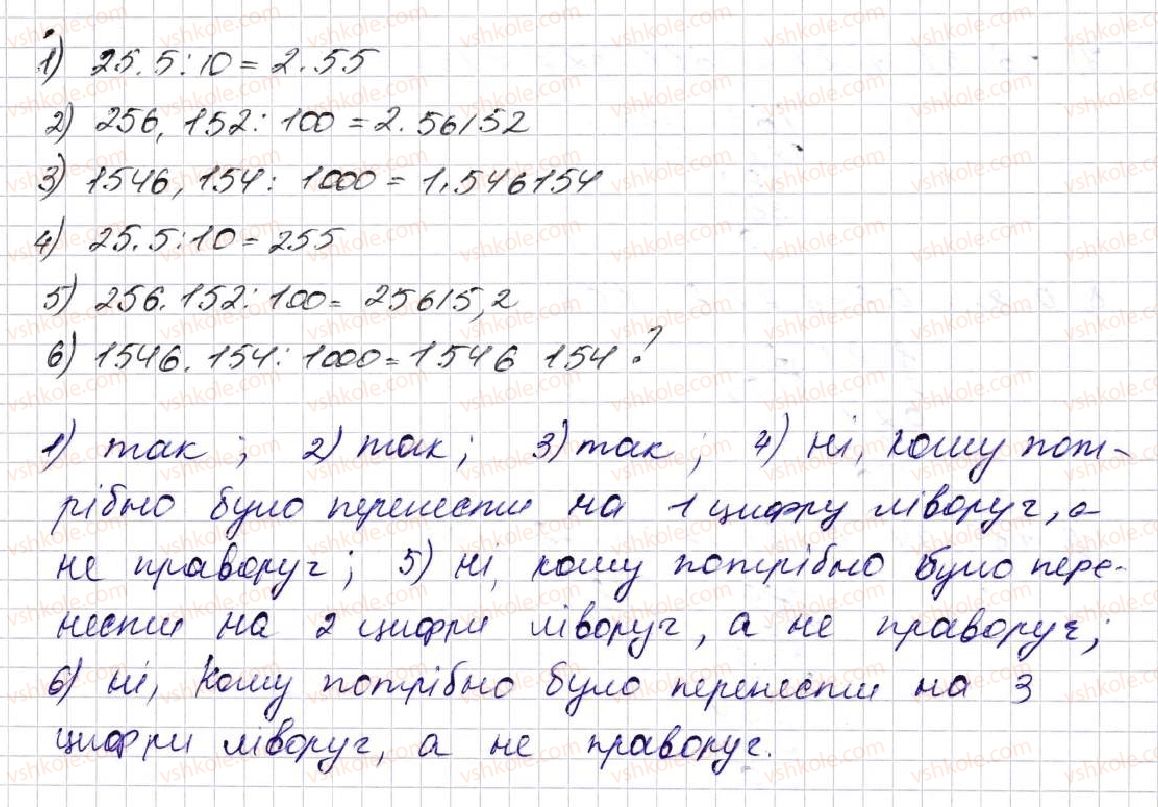 1) 25.5:10=2.55
2) 256,152:100=2.56152
3) 1546,154:1000=1.546154
4) 25.5:10=255
5) 256.152:100=25615,2
6) 1546.154:1000=1546 154?
1) так; 2) так; 3) так; 4) ні, кому пот-
рібно було перенести на 1 цифру ліворуч, а
не праворуч; 5) ні, кому потрібно було пере-
нести на 2 цифри ліворуч, а не праворуч;
6) ні, кому потрібно було перенести на 3
цифри ліворуч, а не праворуч.